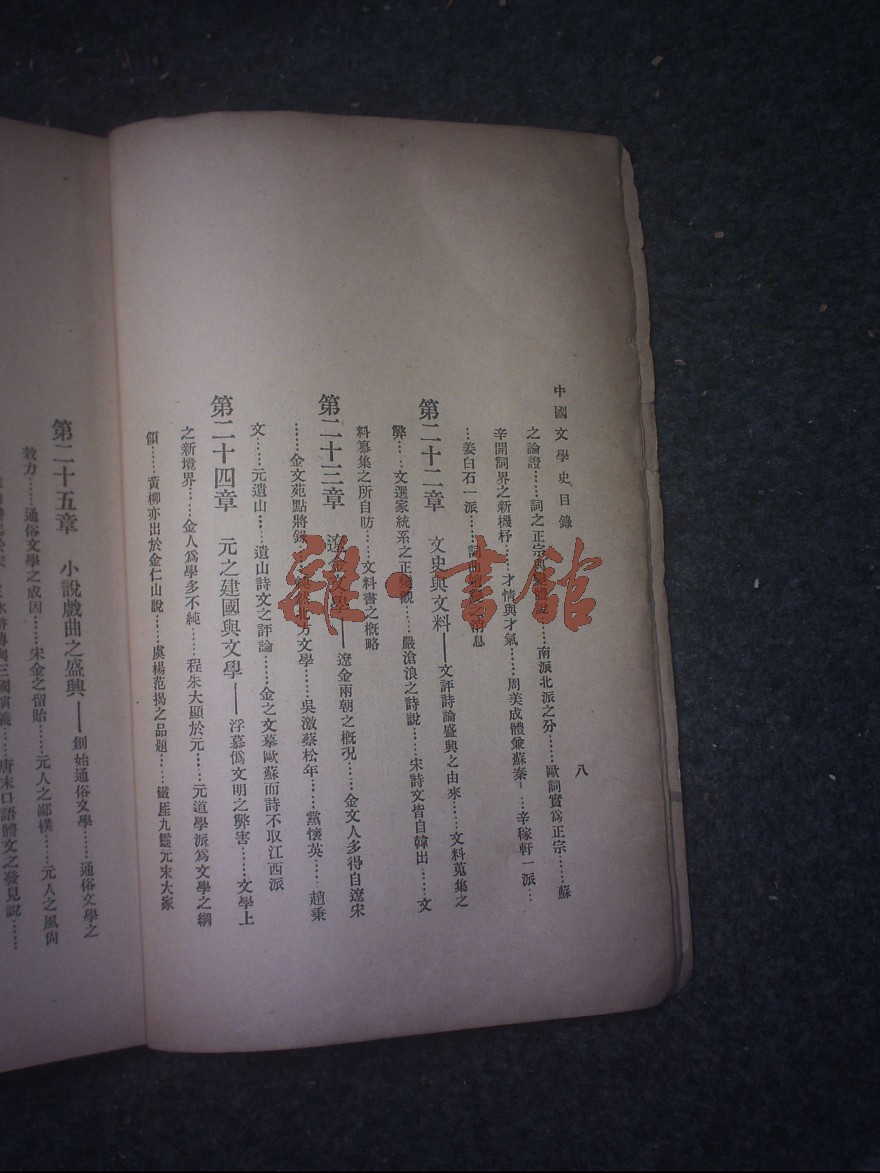 中國文學史目錄
八
之論證……詞之正宗與變體說……南派北派之分……歐詞實爲正宗……蘇
辛開詞界之新機杼……才情與才氣……周美成體兼蘇秦……辛稼軒一派……
……姜白石一派……詞曲 消息
第二十二章 文史與文料——文評詩論盛興之由來……文料蒐集之
弊……文選家統系之正變觀……嚴滄浪之詩說……宋詩文皆自韓出……文
料纂集之所自昉……文料書之概略
第二十三章 遼金文學——遼金兩朝之槪況……金文人多得自遼宋
……金文苑點將錄…… 北方文學……吳激蔡松年……黨懷英……趙秉
文……元遺山……遺山詩文之評論……金之文摹歐蘇而詩不取江西派
第二十四章 元之建國與文學——浮慕僞文明之弊害……文學上
之新境界……金人爲學多不純……程朱大顯於元……元道學派爲文學之綱
領……黃柳亦出於金仁山說……虞楊范揭之品題……鐵厓九靈元末大家
第二十五章 小說戲曲之盛興——創始通俗文學……通俗文學之
效力……通俗文學之成因……宋金之留貽……元人之鄙樸……元人之風尙
水滸傳與三國演義……唐末口語體文之發見說……
雜·書館